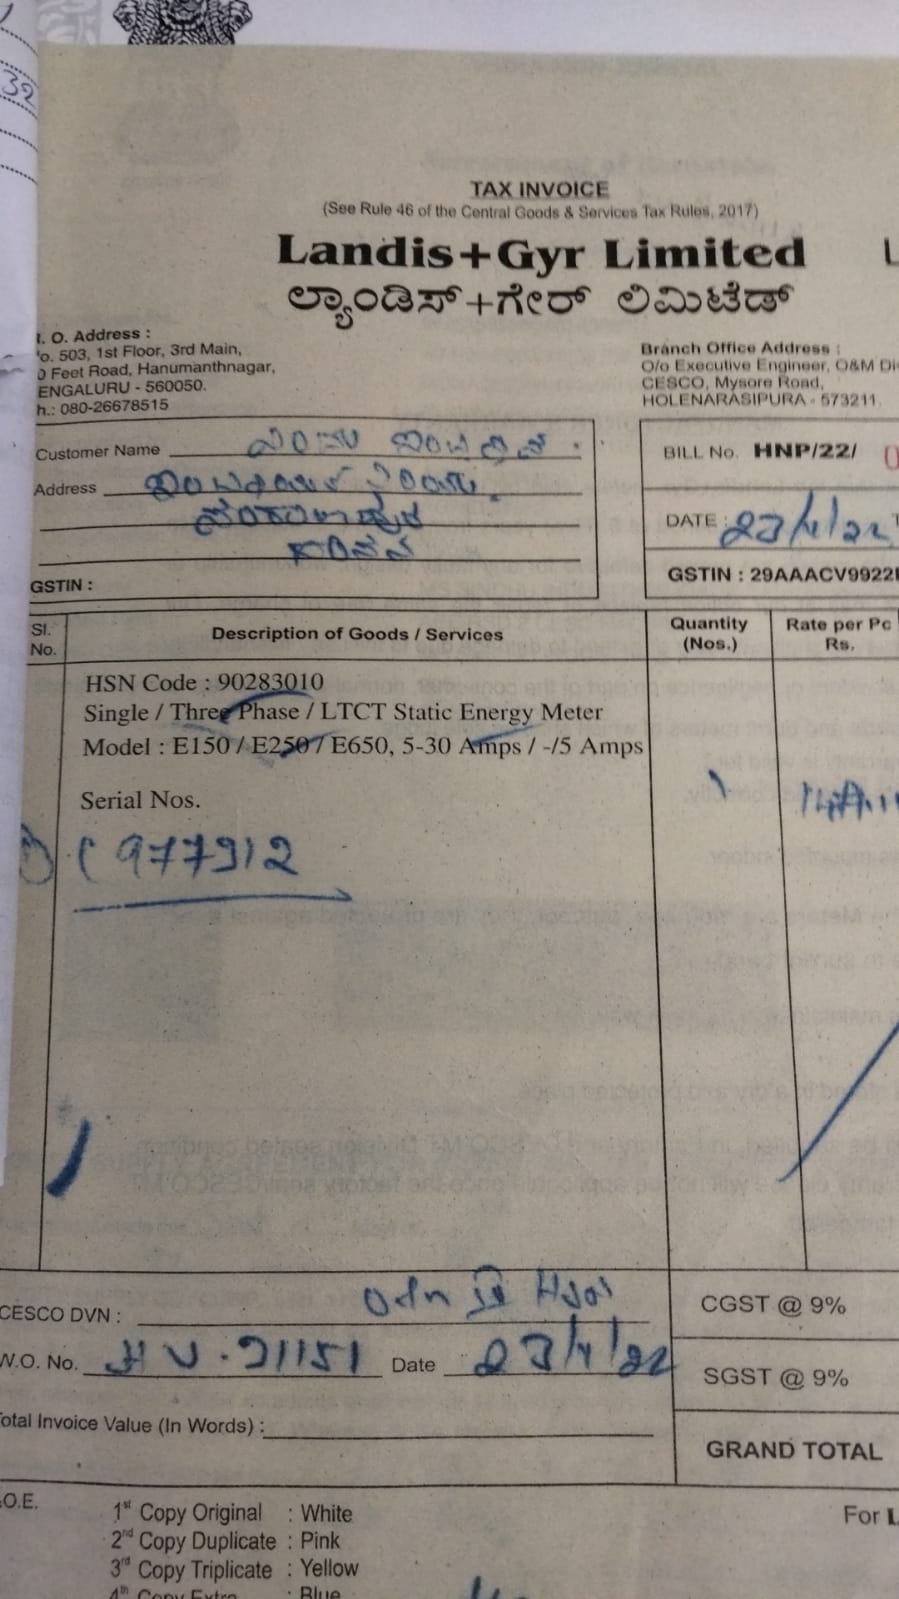 32
TAX INVOICE
(See Rule 46 of the Central Goods & Services Tax Rules, 2017)
Landis+Gyr Limited
L
ಲ್ಯಾಂಡಿಸ್+ಗೇರ್ ಲಿಮಿಟೆಡ್
. O. Address :
o. 503, 1st Floor, 3rd Main,
0 Feet Road, Hanumanthnagar,
ENGALURU - 560050.
h.: 080-26678515
Branch Office Address :
O/o Executive Engineer, O&M Di
CESCO, Mysore Road,
HOLENARASIPURA - 573211.
Customer Name
Address
GSTIN :
BILL No. HNP/22/ 0
DATE : 23/4/22
GSTIN : 29AAACV9922
Sl. No.
Description of Goods / Services
Quantity (Nos.)
Rate per Pc Rs.
HSN Code : 90283010
Single / Three Phase / LTCT Static Energy Meter
Model : E150 / E250 / E650, 5-30 Amps / -/5 Amps
Serial Nos.
977912
CESCO DVN :
W.O. No. 21151 Date 23/4/22
otal Invoice Value (In Words) :
CGST @ 9%
SGST @ 9%
GRAND TOTAL
.O.E.
1st Copy Original : White
2nd Copy Duplicate : Pink
3rd Copy Triplicate : Yellow
4th Copy Extra : Blue
For L